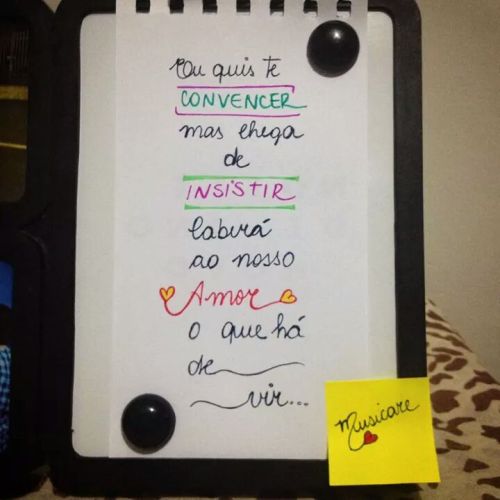 Eu quis te
CONVENCER
mas chega
de
INSISTIR
Caberá
ao nosso
Amor
o que há
de
vir...
Musicare